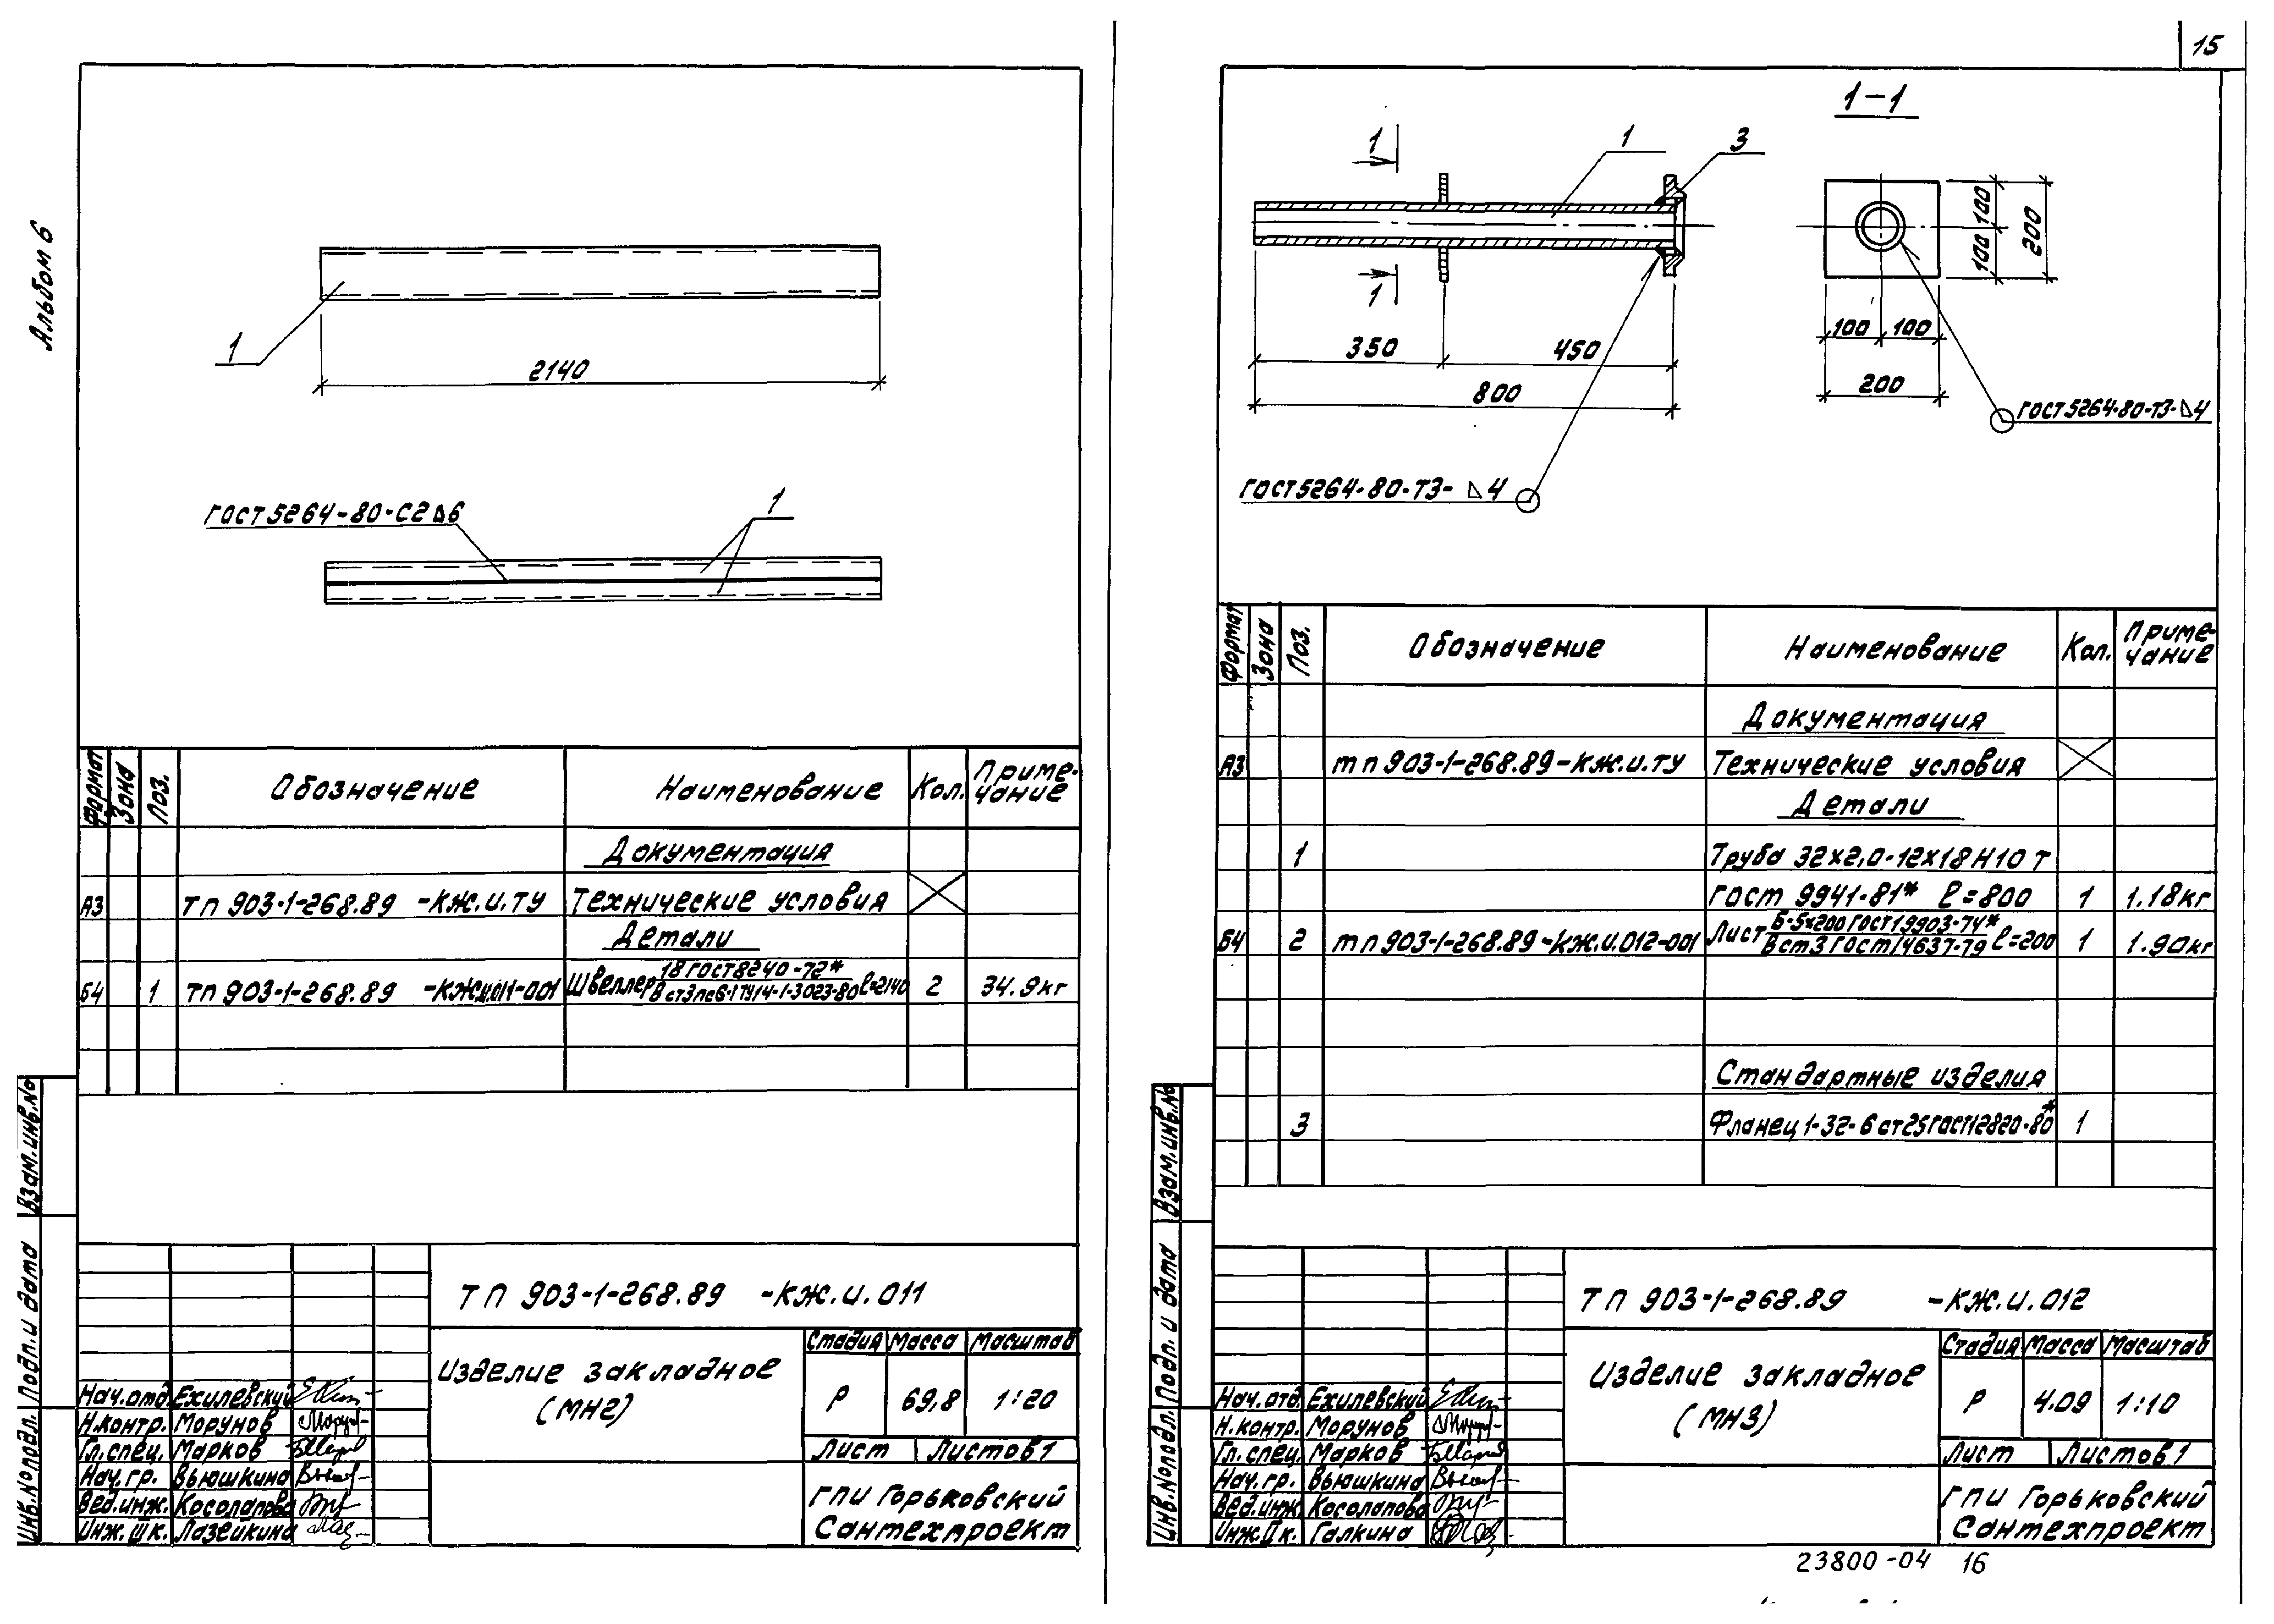 15
Альбом 6
1
2140
ГОСТ 5264-80-С2 ⊿6
1
Формат Зона Поз. Обозначение Наименование Кол. Приме-
чание
Документация
А3 ТП 903-1-268.89 -КЖ.И.ТУ Технические условия
Детали
Б4 1 ТП 903-1-268.89 -КЖ.И.011-001 Швеллер 18 ГОСТ 8240-72* / В ст3пс6-1 ТУ14-1-3023-80 ℓ=2140 2 34.9кг
Взам.инв.№
Подп. и дата
Инв.№подл.
ТП 903-1-268.89 -КЖ.И.011
Изделие закладное
(МН2)
Стадия Масса Масштаб
Р 69,8 1:20
Лист Листов 1
ГПИ Горьковский
Сантехпроект
Нач.отд. Ехилевский
Н.контр. Морунов
Гл.спец. Марков
Нач.гр. Вьюшкина
Вед.инж. Косолапова
Инж.IIк. Лазейкина
1-1
1
1
1
3
350
450
800
100
100
200
100
100
200
ГОСТ 5264-80-Т3-⊿4
ГОСТ 5264-80-Т3-⊿4
Формат Зона Поз. Обозначение Наименование Кол. Приме-
чание
Документация
А3 ТП 903-1-268.89-КЖ.И.ТУ Технические условия
Детали
1 Труба 32х2,0-12х18Н10Т
ГОСТ 9941-81* ℓ=800 1 1.18кг
Б4 2 ТП 903-1-268.89-КЖ.И.012-001 Лист Б-5х200 ГОСТ 19903-74* / В ст3 ГОСТ 14637-79 ℓ=200 1 1.90кг
Стандартные изделия
3 Фланец 1-32-6 ст25 ГОСТ 12820-80* 1
Взам.инв.№
Подп. и дата
Инв.№подл.
ТП 903-1-268.89 -КЖ.И.012
Изделие закладное
(МН3)
Стадия Масса Масштаб
Р 4.09 1:10
Лист Листов 1
ГПИ Горьковский
Сантехпроект
Нач.отд. Ехилевский
Н.контр. Морунов
Гл.спец. Марков
Нач.гр. Вьюшкина
Вед.инж. Косолапова
Инж.IIк. Галкина
23800-04 16